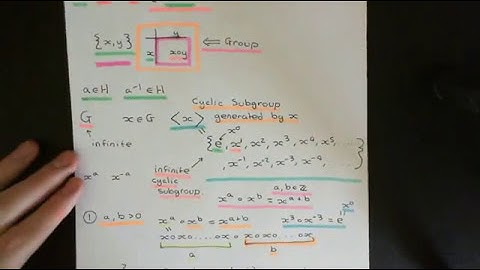 {x,y} y
x x∘y ⇐ Group
a∈H a⁻¹∈H
Cyclic Subgroup
G x∈G <x> generated by x
x⁰
infinite {e, x¹, x², x³, x⁴, x⁵, ....
x⁻¹, x⁻², x⁻³, x⁻⁴, ....}
xᵃ x⁻ᵃ infinite
cyclic
subgroup. a,b∈ℤ
xᵃ∘xᵇ = xᵃ⁺ᵇ
x⁰
① a,b>0 xᵃ∘xᵇ = xᵃ⁺ᵇ x³∘x⁻³ = e
x∘x∘....∘x∘ x∘x∘....∘x
a b